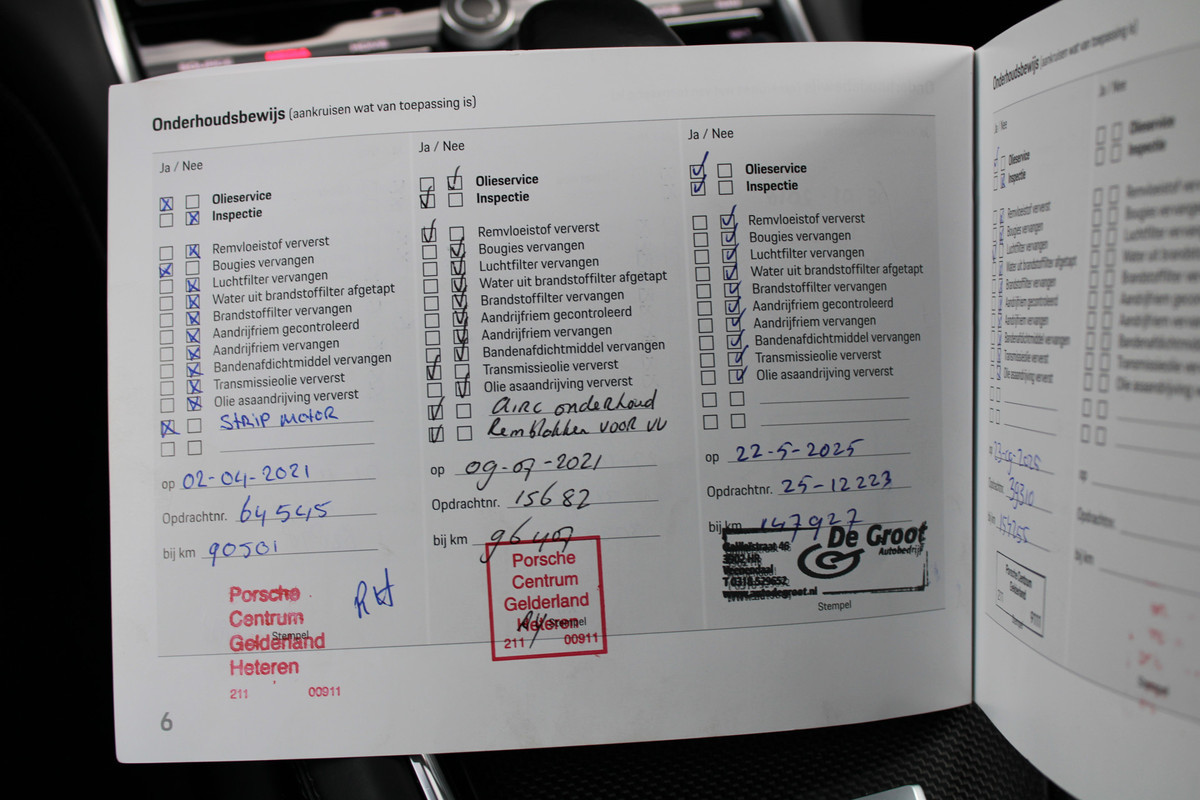 Onderhoudsbewijs (aankruisen wat van toepassing is)
Ja / Nee
Olieservice
Inspectie
Remvloeistof ververst
Bougies vervangen
Luchtfilter vervangen
Water uit brandstoffilter afgetapt
Brandstoffilter vervangen
Aandrijfriem gecontroleerd
Aandrijfriem vervangen
Bandenafdichtmiddel vervangen
Transmissieolie ververst
Olie asaandrijving ververst
STRIP MOTOR
op 02-04-2021
Opdrachtnr. 64545
bij km 90501
Porsche
Centrum
Gelderland
Stempel
Heteren
211 00911
RH
Ja / Nee
Olieservice
Inspectie
Remvloeistof ververst
Bougies vervangen
Luchtfilter vervangen
Water uit brandstoffilter afgetapt
Brandstoffilter vervangen
Aandrijfriem gecontroleerd
Aandrijfriem vervangen
Bandenafdichtmiddel vervangen
Transmissieolie ververst
Olie asaandrijving ververst
Airc onderhoud
Remblokken voor vv
op 09-07-2021
Opdrachtnr. 15682
bij km 96407
Porsche
Centrum
Gelderland
Heteren
Stempel
211 00911
Ja / Nee
Olieservice
Inspectie
Remvloeistof ververst
Bougies vervangen
Luchtfilter vervangen
Water uit brandstoffilter afgetapt
Brandstoffilter vervangen
Aandrijfriem gecontroleerd
Aandrijfriem vervangen
Bandenafdichtmiddel vervangen
Transmissieolie ververst
Olie asaandrijving ververst
op 22-5-2025
Opdrachtnr. 25-12223
bij km 147927
De Groot
Autobedrijf
Galileïstraat 46
3902 HR
Veenendaal
T 0318 529652
www.autodegroot.nl
Stempel
6
Onderhoudsbewijs (aankruisen wat van toepassing is)
Ja / Nee
Olieservice
Inspectie
Remvloeistof ververst
Bougies vervangen
Luchtfilter vervangen
Water uit brandstoffilter afgetapt
Brandstoffilter vervangen
Aandrijfriem gecontroleerd
Aandrijfriem vervangen
Bandenafdichtmiddel vervangen
Transmissieolie ververst
Olie asaandrijving ververst
Porsche Centrum
Gelderland
211
Ja / Nee
Olieservice
Inspectie
op
Opdrachtnr.
bij km